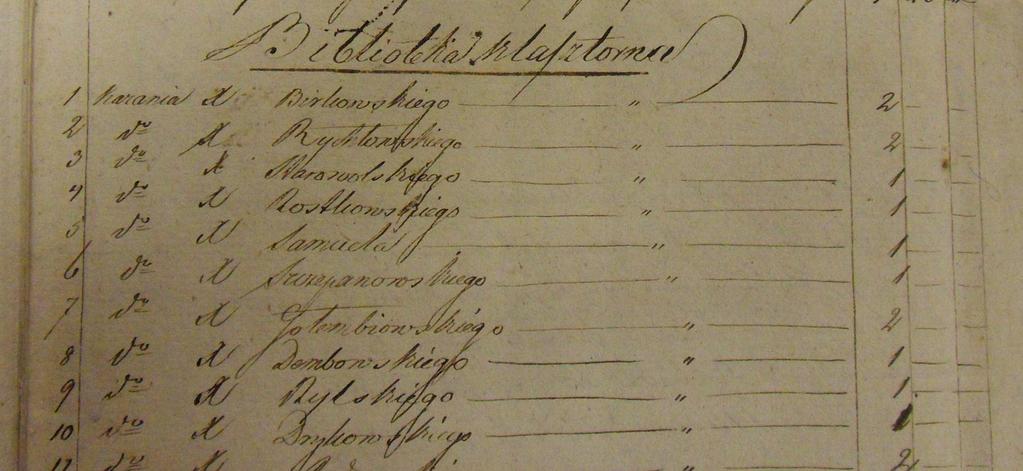 Biblioteka klasztorna
1 Kazania X Birkowskiego — " — 2 — —
2 do X Rychłowskiego — " — 2 — —
3 do X Starowolskiego — " — 1 — —
4 do X Rostkowskiego — " — 1 — —
5 do X Samuela — " — 1 — —
6 do X Szczepanowskiego — " — 1 — —
7 do X Gołembiowskiégo — " — 2 — —
8 do X Dembowskiégo — " — 1 — —
9 do X Rylskiégo — " — 1 — —
10 do X — " — 1 — —
do X 2